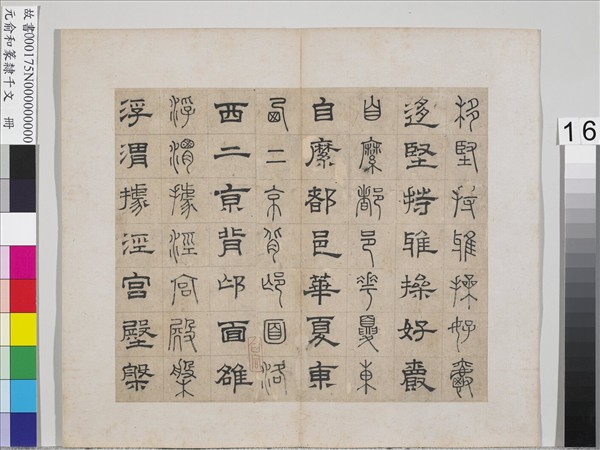 故書000175N000000000
元俞和篆隸千文　冊
16
移堅持雅操好爵
迻堅持雅操好爵
自縻都邑華夏東
自縻都邑華夏東
西二京背邙面洛
西二京背邙面雒
浮渭據涇宮殿槃
浮渭據涇宮殿槃